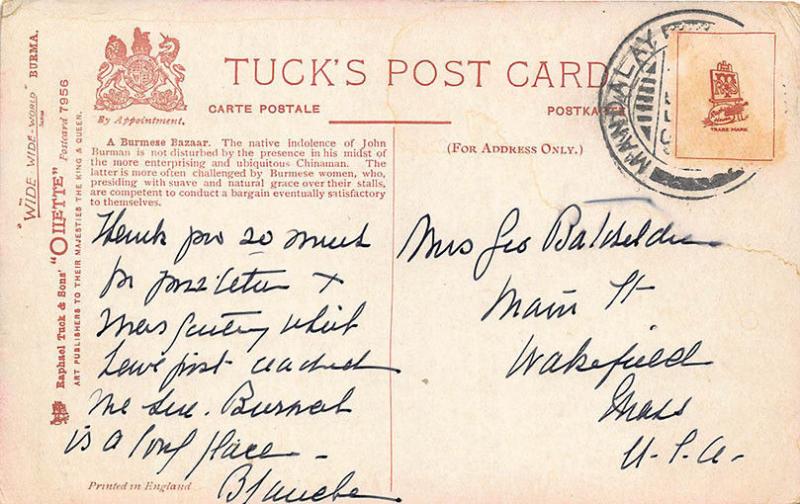 "WIDE-WIDE-WORLD" BURMA.
Raphael Tuck & Sons' "OILETTE" Postcard 7956
ART PUBLISHERS TO THEIR MAJESTIES THE KING & QUEEN.
By Appointment.
TUCK'S POST CARD
CARTE POSTALE
POSTKA
MANDALAY
TRADE MARK
A Burmese Bazaar. The native indolence of John
Burman is not disturbed by the presence in his midst of
the more enterprising and ubiquitous Chinaman. The
latter is more often challenged by Burmese women, who,
presiding with suave and natural grace over their stalls,
are competent to conduct a bargain eventually satisfactory
to themselves.
(FOR ADDRESS ONLY.)
Thank you so much
for letter +
Xmas greeting which
have just reached
me here. Burmah
is a place -
Blanche
Mrs Geo Batchelder
Main St
Wakefield
Mass
U.S.A.
Printed in England